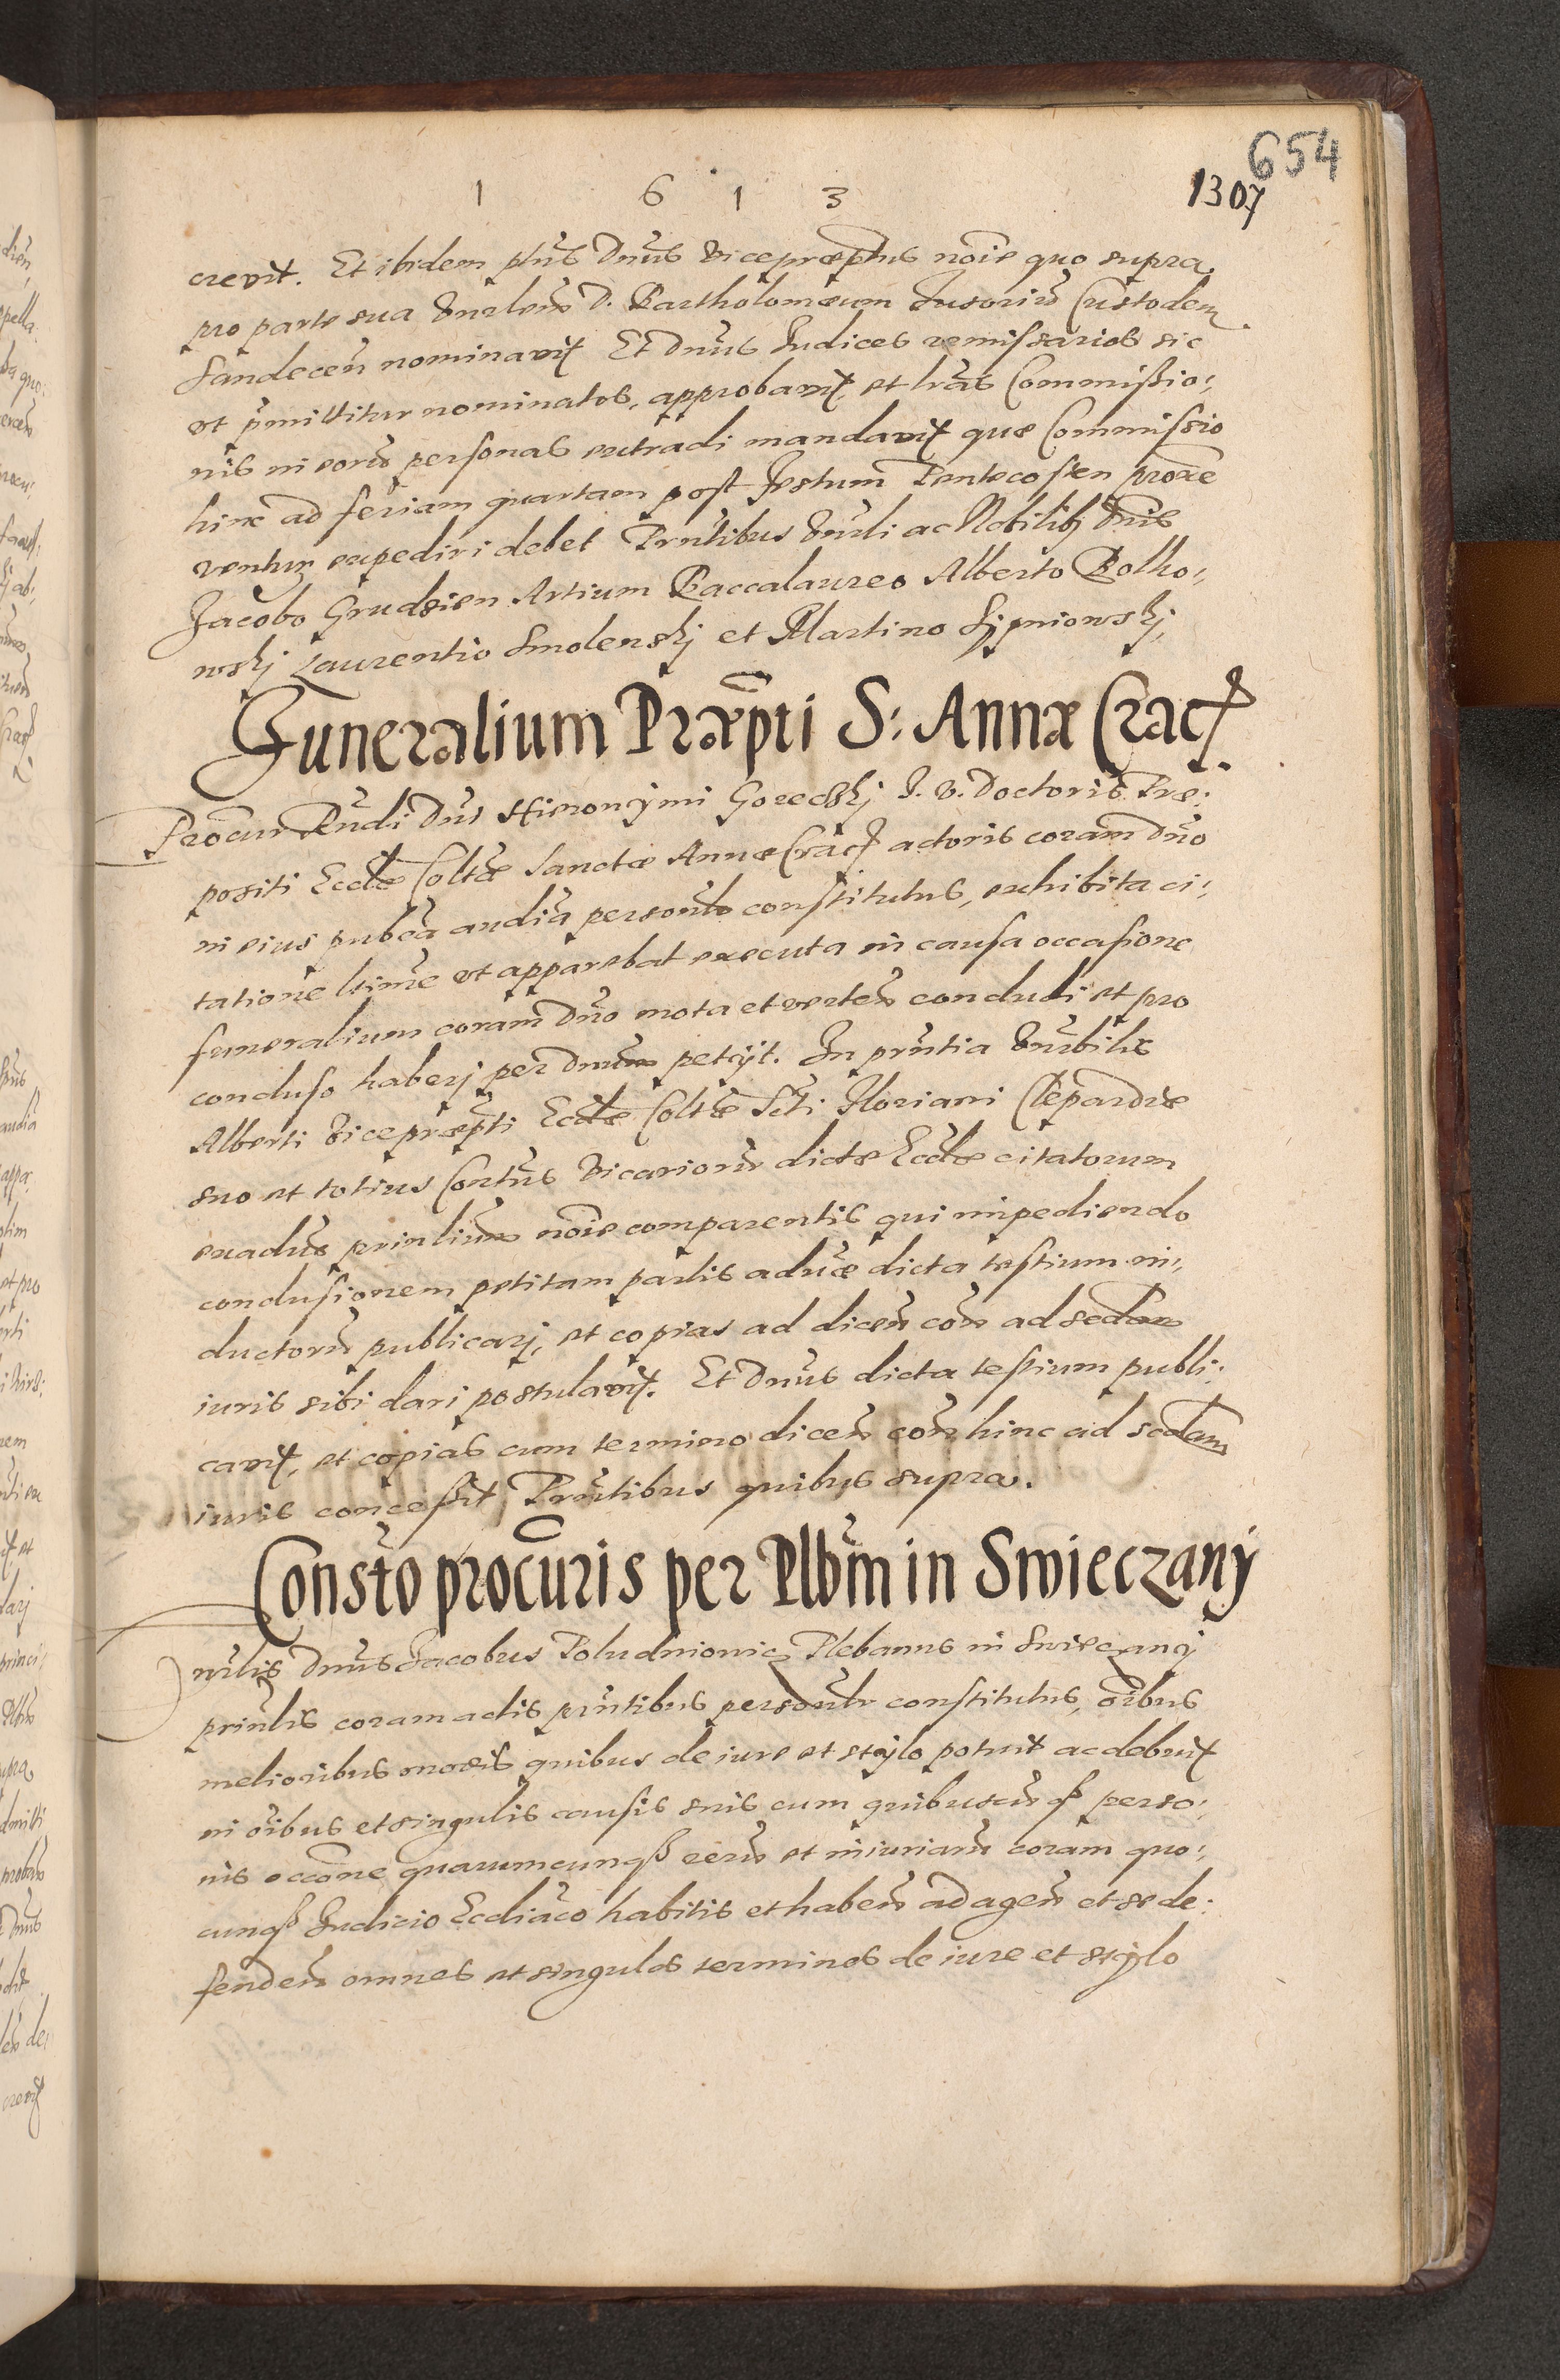 654
1307
1 6 1 3
crevit. Et ibidem ptus Dnus Vicepræptus noie quo supra
pro parte sua Vnrlem D. Bartholomæum Fusoriu Custodem
Sandeceñ nominavit Et Dnus Iudices remissarios sic
ut pmittitur nominatos, approbavit, et lras Commissio:
nis in eoru personas extradi mandavit quæ Commissio
hinc ad feriam quartam post festum Pentecosten proxe
ventur expediri debet Prntibus Vnrli ac Nobilib Dnis
Jacobo Grudzien Artium Baccalaureo Alberto Bolko:
wskj Laurentio Smolenskj et Martino Lipniowskj,
Funeralium Præpti S: Annæ Crac
Procur Rndi Dni Hieronymi Goreckj I. V. Doctoris Præ:
positi Ecclæ Coltæ Sanctæ Annæ Crac actoris coram Dno
in eius pubca audia personlr constitutus, exhibita ci:
tatione ltime ut apparebat executa in causa occasione
funeralium coram Dno mota et verten concludi et pro
concluso haberj per Dnum petijt. In prntia Vnrbilis
Alberti Vicepræpti Ecclæ Coltæ Scti Floriani Clepardiæ
suo et totius Contus Vicarioru dictæ Ecclæ citatorum
exadus prinlium noie comparentis qui impediendo
conclusionem petitam partis aduæ dicta testium in:
ductoru publicarj, et copias ad diceñ con ad scdam
iuris sibi dari postulavit. Et Dnus dicta testium publi:
cavit, et copias cum termino diceñ con hinc ad scdam
iuris concessit Prntibus quibus supra.
Consto procuris per Plbm in Swieczany
Vnrlis Dnus Jacobus Poludniowicz Plebanus in Swieczany
prinlis coram actis prntibus personlr constitutus, oibus
melioribus modis quibus de iure et stylo potuit ac debuit
in oibus et singulis causis suis cum quibuscunq perso:
nis occone quarumcunq reru et iniuriaru coram quo:
cunq Iudicio Eccliaco habitis et habeñ ad ageñ et se de:
fendeñ omnes et singulos terminos de iure et stylo